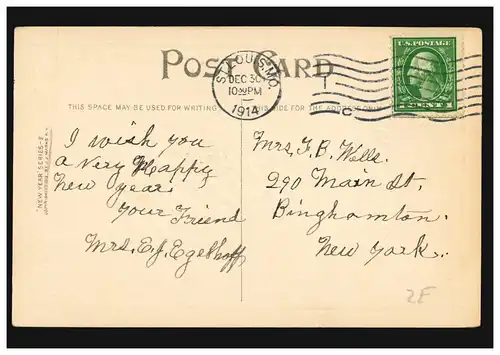 POST CARD
ST. LOUIS, MO.
DEC 30
10 30 PM
1914
U.S. POSTAGE
1 CENT 1
THIS SPACE MAY BE USED FOR WRITING
THIS SIDE IS FOR THE ADDRESS ONLY
"NEW YEAR" SERIES-
I wish you
a Very Happy
New year
Your Friend
Mrs. E.J. Egelhoff
Mrs. T. B. Wells.
290 Main St.
Binghamton.
New York.
2F